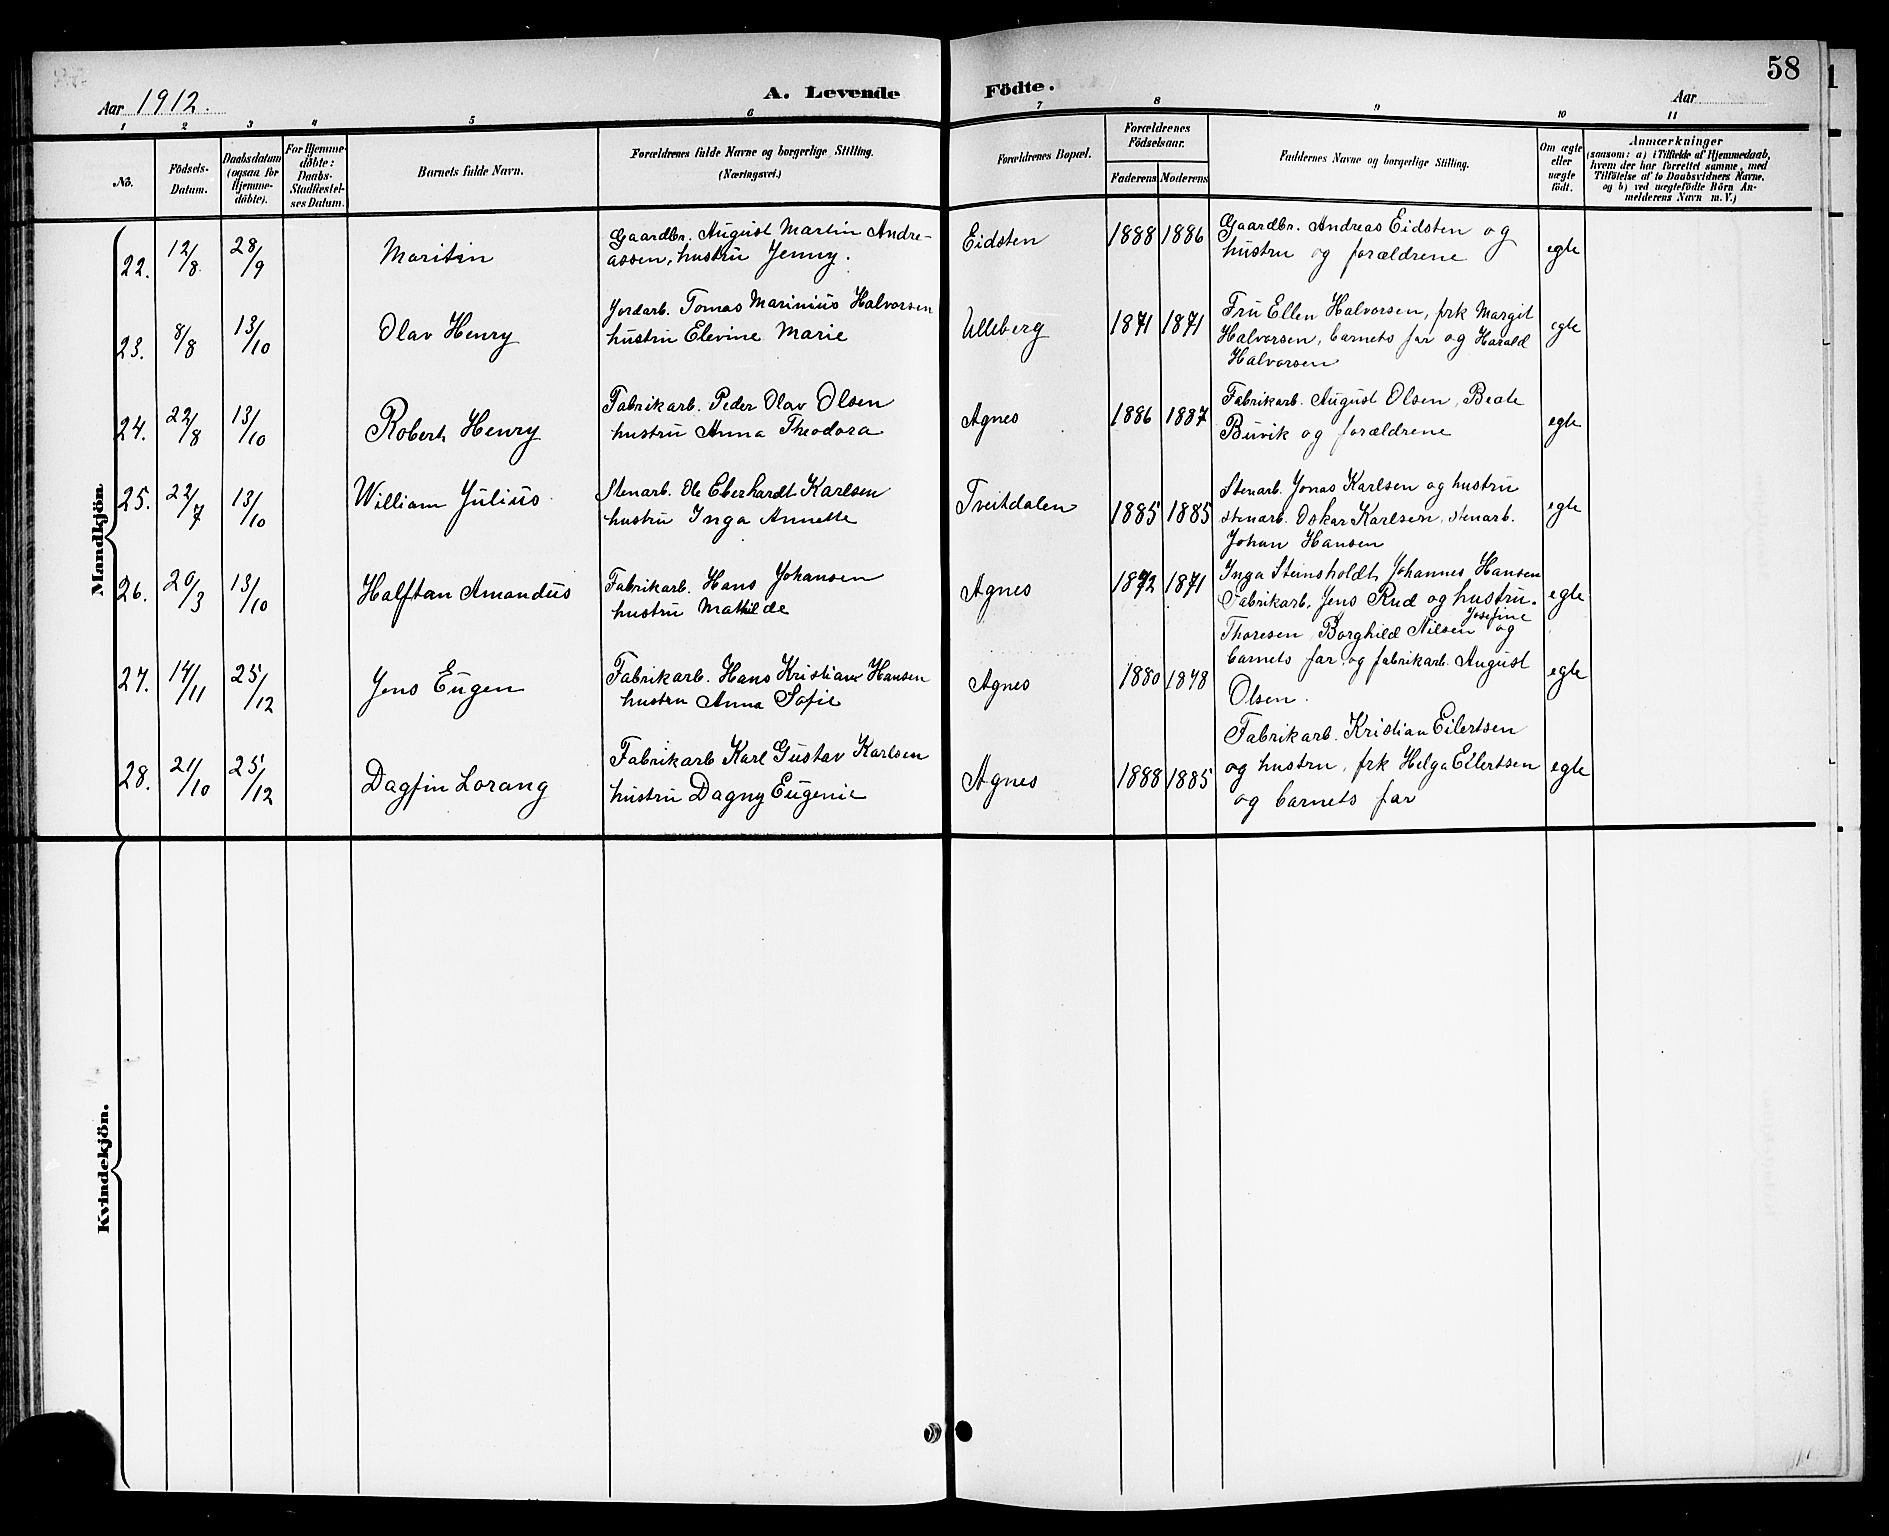 58
Aar 1912.
A. Levende Födte.
Aar
1 2 3 4 5 6 7 8 9 10 11
No.
Födsels-
Datum.
Daabsdatum
(ogsaa for
Hjemme-
döbte).
For Hjemme-
döbte:
Daabs-
Stadfæstel-
ses Datum.
Barnets fulde Navn.
Forældrenes fulde Navne og borgerlige Stilling.
(Næringsvei.)
Forældrenes Bopæl.
Forældrenes
Födselsaar.
Faderens Moderens
Faddernes Navne og borgerlige Stilling.
Om ægte
eller
uægte
födt.
Anmærkninger
(saasom: a) i Tilfælde af Hjemmedaab,
hvem der har forrettet samme, med
Tilföielse af to Daabsvidners Navne,
og b) ved uægtefödte Börn An-
melderens Navn m. V.)
Mandkjön
22. 12/8. 28/9 Maritin
Gaardbr. August Martin Andre-
assen, hustru Jenny.
Eidsten 1888 1886
Gaardbr. Andreas Eidsten og
hustru og forældrene
egte
23. 8/8 13/10 Olav Henry
Jordarb. Tomas Marinius Halvorsen
hustru Elevine Marie
Ulleberg 1871 1871
Fru Ellen Halvorsen, frk Margit
Halvorsen, barnets far og Harald
Halvorsen
egte
24. 22/8 13/10 Robert Henry
Fabrikarb. Peder Olav Olsen
hustru Anna Theodora
Agnes 1886 1887
Fabrikarb. August Olsen, Beate
Buvik og forældrene
egte
25. 22/7 13/10 William Julius
Stenarb. Ole Eberhardt Karlsen
hustru Inga Annette
Tveitdalen 1885 1885
Stenarb. Jonas Karlsen og hustru
stenarb. Oskar Karlsen, stenarb.
Johan Hansen
egte
26. 20/3 13/10 Halftan Amandus
Fabrikarb. Hans Johansen
hustru Mathilde
Agnes 1872 1871
Inga Steinsholdt, Johannes Hansen
Fabrikarb. Jens Rud og hustru.
egte
27. 14/11 25/12 Jens Eugen
Fabrikarb. Hans Kristian Hansen
hustru Anna Sofie
Agnes 1880 1878
Josefine
Thoresen, Borghild Nilsen og
barnets far og fabrikarb. August
Olsen.
egte
28. 21/10 25/12 Dagfin Lorang
Fabrikarb Karl Gustav Karlsen
hustru Dagny Eugenie
Agnes 1888 1885
Fabrikarb. Kristian Eilertsen
og hustru, frk Helga Eilertsen
og barnets far
egte
Kvindekjön.